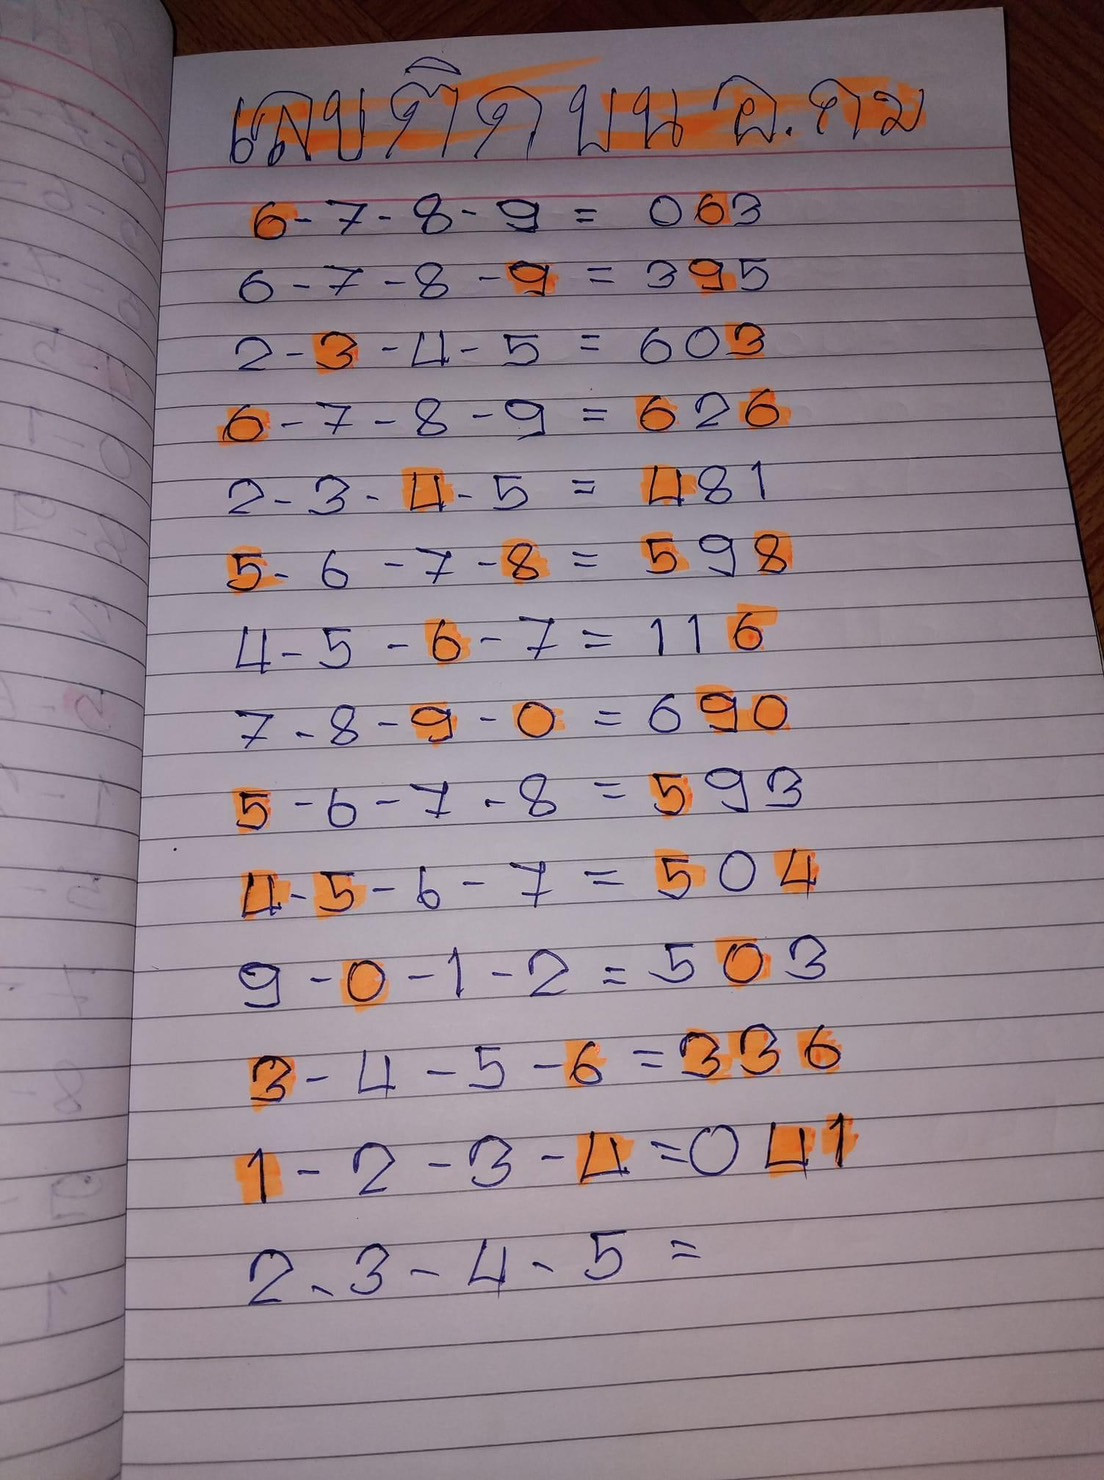 เลขติด บน อ.คม
6-7-8-9 = 063
6-7-8-9 = 395
2-3-4-5 = 603
6-7-8-9 = 626
2-3-4-5 = 481
5-6-7-8 = 598
4-5-6-7 = 116
7-8-9-0 = 690
5-6-7-8 = 593
4-5-6-7 = 504
9-0-1-2 = 503
3-4-5-6 = 336
1-2-3-4 = 041
2-3-4-5 =